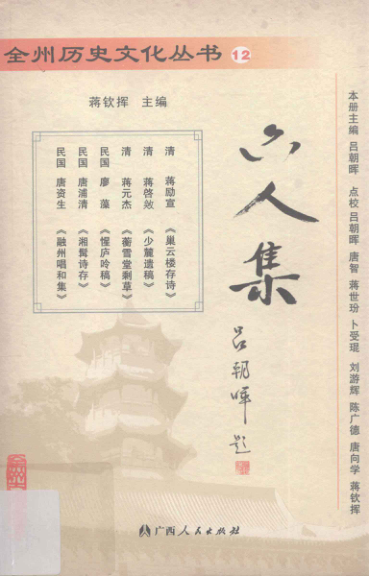 全州历史文化丛书 12
蒋钦挥 主编
六人集
吕朝晖题
本册主编 吕朝晖 点校 吕朝晖 唐智 蒋世玢 卜受琨 刘游辉 陈广德 唐向学 蒋钦挥
清 蒋励宣 《巢云楼存诗》
清 蒋启敭 《少麓遗稿》
清 蒋元杰 《蘅雪堂剩草》
民国 廖藻 《惺庐吟稿》
民国 唐浦清 《湘髯诗存》
民国 唐资生 《融州唱和集》
广西人民出版社